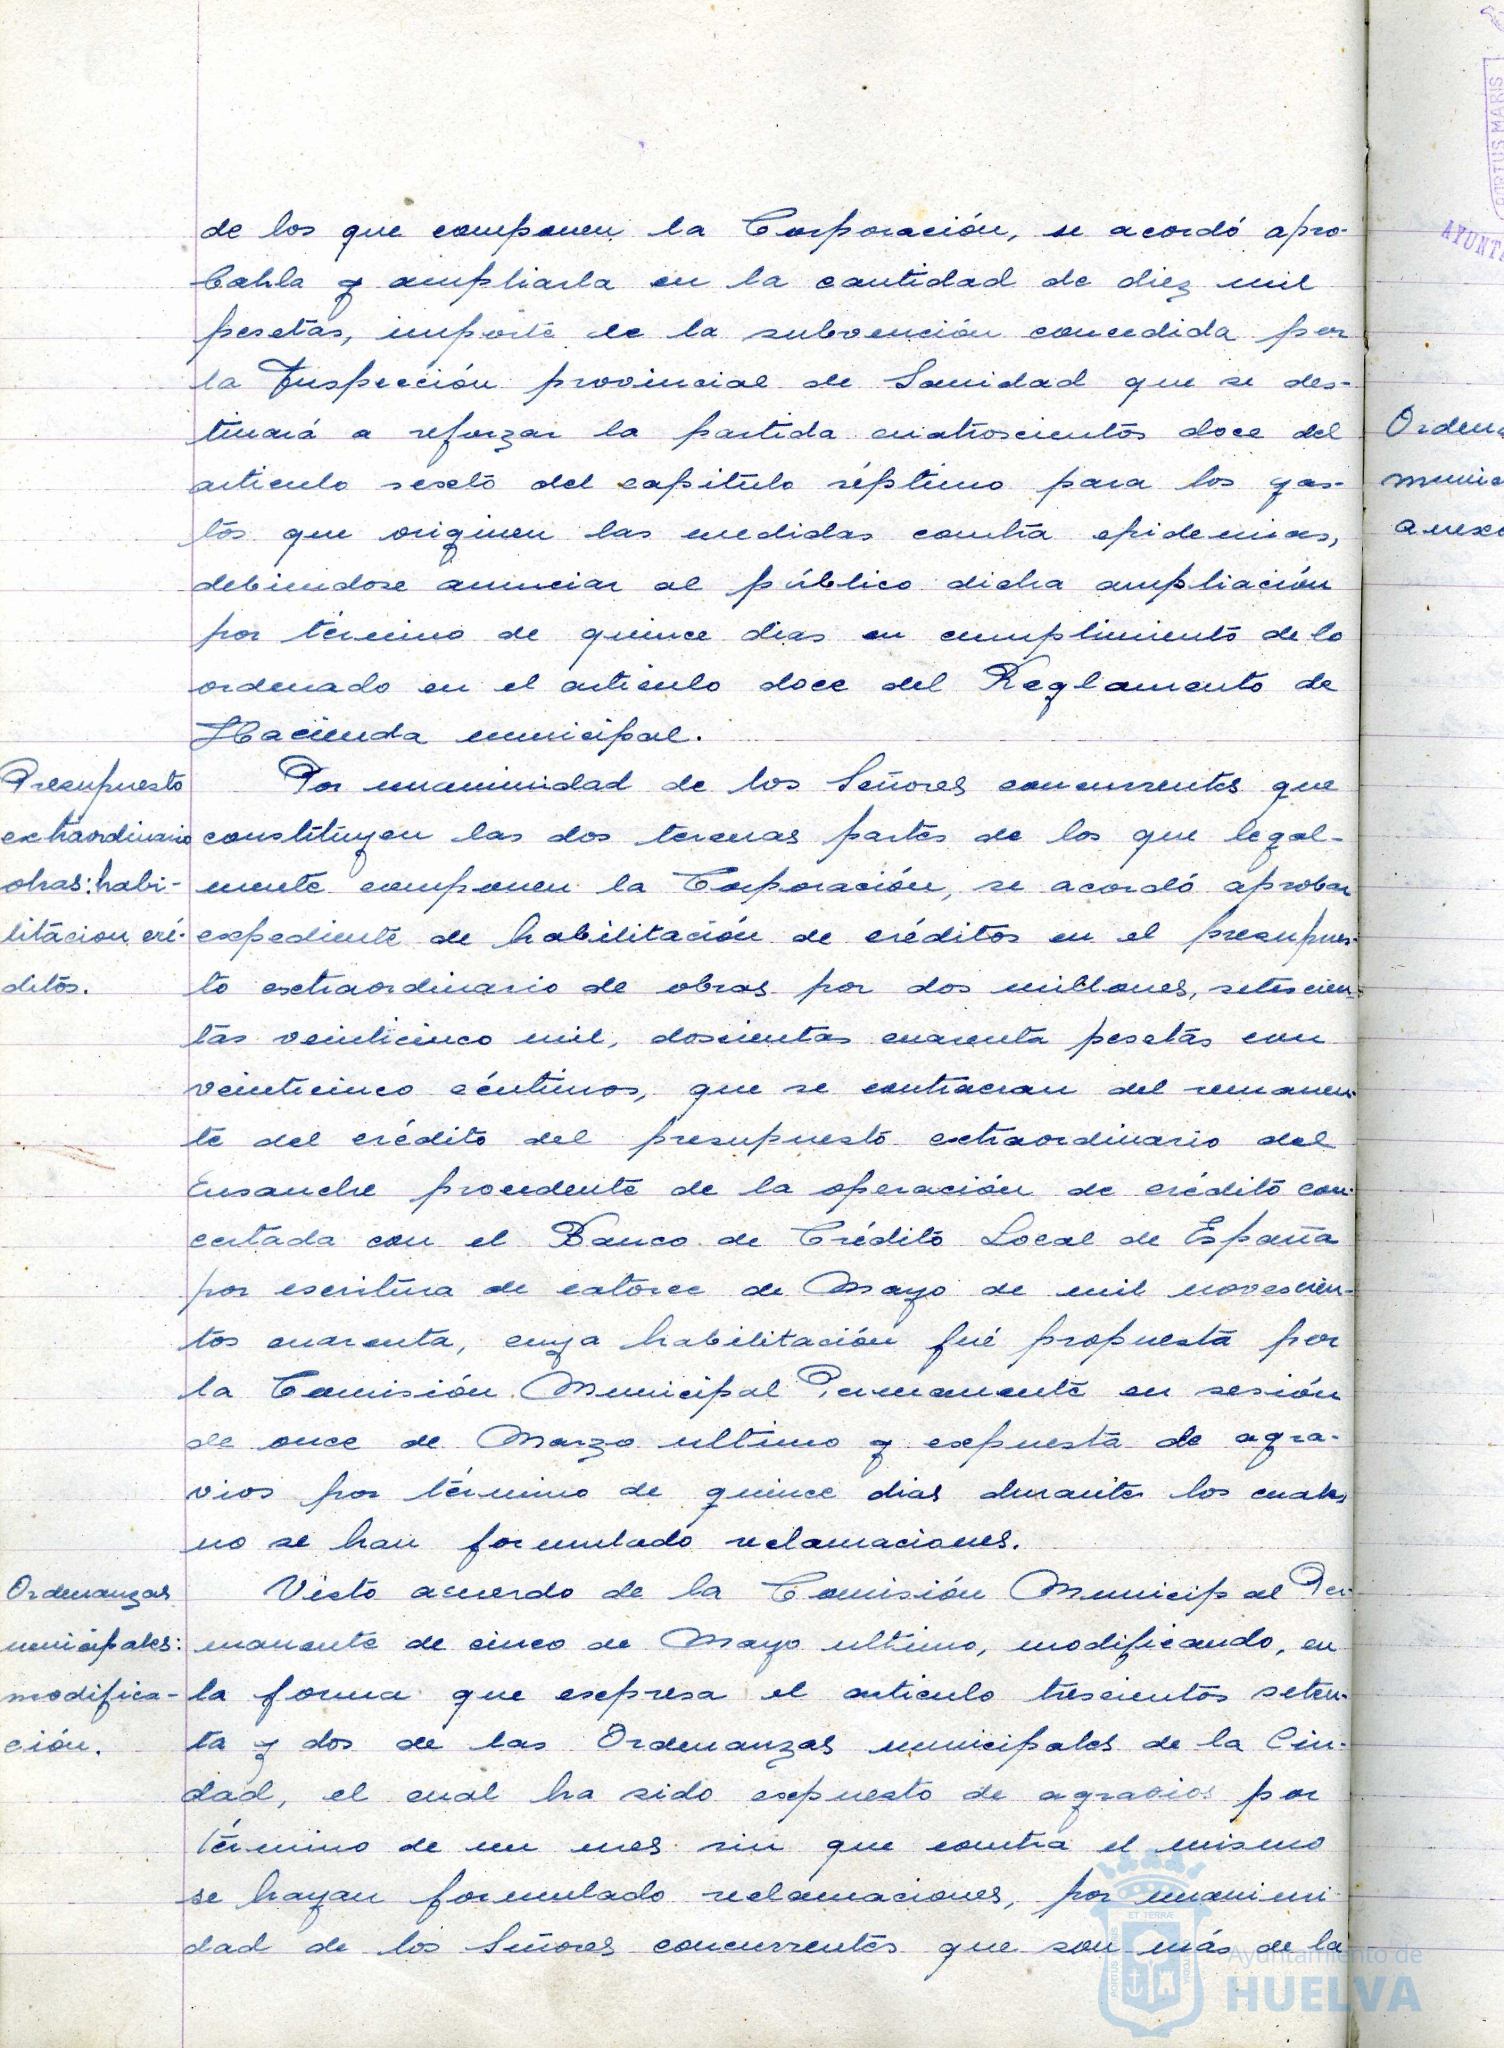 de los que componen la Corporación, se acordó apro-
barla y ampliarla en la cantidad de diez mil
pesetas, importe de la subvención concedida por
la Inspección provincial de Sanidad que se des-
tinará a reforzar la partida cuatroscientos doce del
articulo sexto del capitulo séptimo para los gas-
tos que originen las medidas contra epidemias,
debiendose anunciar al público dicha ampliación
por término de quince dias en cumplimiento de lo
ordenado en el articulo doce del Reglamento de
Hacienda municipal.
Presupuesto
extraordinario
obras: habi-
litacion cré-
ditos.
Por unanimidad de los Señores concurrentes que
constituyen las dos terceras partes de los que legal-
mente componen la Corporación, se acordó aprobar
expediente de habilitación de créditos en el presupues-
to extraordinario de obras por dos millones, setescien-
tas veinticinco mil, doscientas cuarenta pesetas con
veinticinco céntimos, que se contraeran del remanen-
te del crédito del presupuesto extraordinario del
Ensanche procedente de la operación de crédito con-
certada con el Banco de Crédito Local de España
por escritura de catorce de Mayo de mil novescien-
tos cuarenta, cuya habilitación fué propuesta por
la Comisión Municipal Permanente en sesión
de once de Marzo ultimo y expuesta de agra-
vios por término de quince dias durante los cuales
no se han formulado reclamaciones.
Ordenanzas
municipales:
modifica-
ción.
Visto acuerdo de la Comisión Municipal Per-
manente de cinco de Mayo ultimo, modificando, en
la forma que expresa el articulo trescientos seten-
ta y dos de las Ordenanzas municipales de la Ciu-
dad, el cual ha sido expuesto de agravios por
término de un mes sin que contra el mismo
se hayan formulado reclamaciones, por unanimi-
dad de los Señores concurrentes que son más de la
Ordena
munic
anexo
PORTUS MARIS
AYUNTA
ET TERRÆ
PORTUS
CUSTODIA
Ayuntamiento de
HUELVA